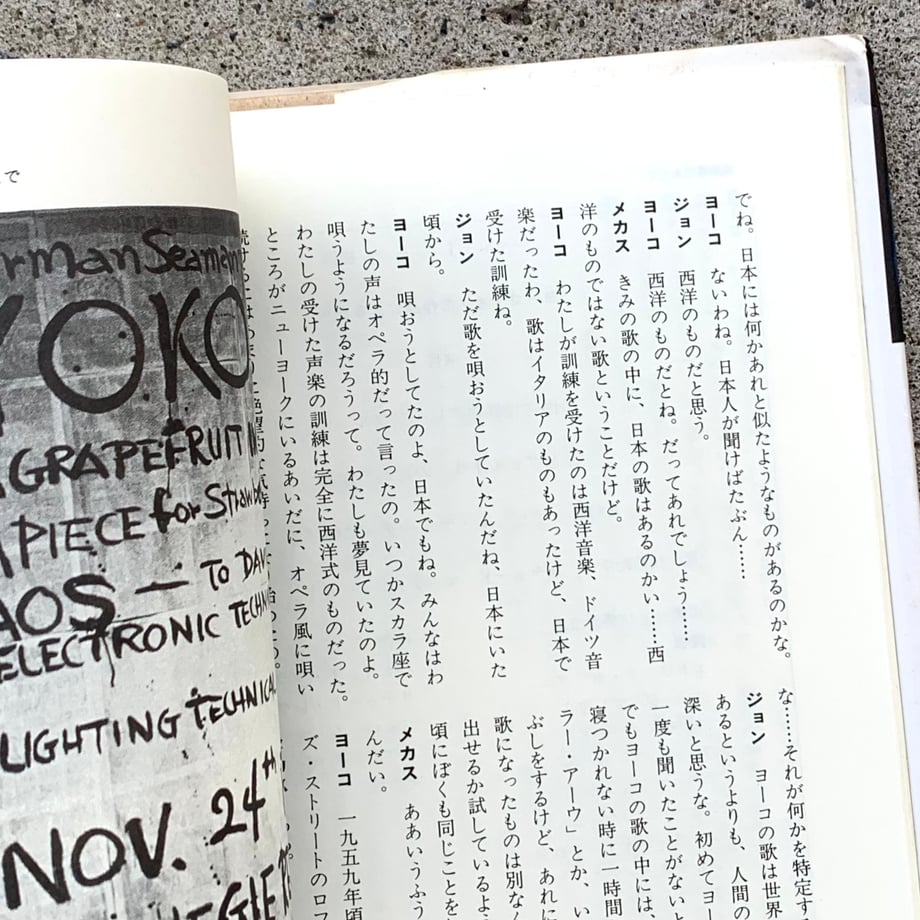 で
rman Seaman
YOKO
GRAPEFRUIT
A PIECE for Straw
AOS — TO DAV
ELECTRONIC TECHN
LIGHTING TECHNICAL
NOV. 24th
でね。日本には何かあれと似たようなものがあるのかな。
ヨーコ ないわね。日本人が聞けばたぶん……
ジョン 西洋のものだと思う。
ヨーコ 西洋のものだとね。だってあれでしょう……
メカス きみの歌の中に、日本の歌はあるのかい……西
洋のものではない歌ということだけど。
ヨーコ わたしが訓練を受けたのは西洋音楽、ドイツ音
楽だったわ、歌はイタリアのものもあったけど、日本で
受けた訓練ね。
ジョン ただ歌を唄おうとしていたんだね、日本にいた
頃から。
ヨーコ 唄おうとしてたのよ、日本でもね。みんなはわ
たしの声はオペラ的だって言ったの。いつかスカラ座で
唄うようになるだろうって。わたしも夢見ていたのよ。
わたしの受けた声楽の訓練は完全に西洋式のものだった。
ところがニューヨークにいるあいだに、オペラ風に唄い
な……それが何かを特定す
ジョン ヨーコの歌は世界
あるというよりも、人間の
深いと思うな。初めてヨ
一度も聞いたことがないと
でもヨーコの歌の中には、
寝つかれない時に一時間
ラー・アーウ」とか、い
ぶしをするけど、あれに
歌になったものは別なん
出せるか試しているよ
頃にぼくも同じことを
メカス ああいうふう
んだい。
ヨーコ 一九五九年頃
ズ・ストリートのロフ